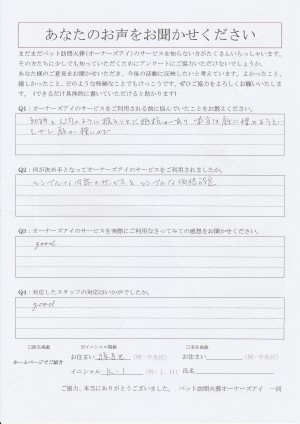 あなたのお声をお聞かせください
まだまだペット訪問火葬(オーナーズアイ)のサービスを知らない方がたくさんいらっしゃいます。
その方たちに少しでも知っていただくためにアンケートにご協力いただけないでしょうか。
あなた様のご意見をお聞かせいただき、今後の活動に反映したいと考えています。よかったこと、
嬉しかったこと、どのような些細なことでもけっこうです。ぜひご協力をよろしくお願いいたしま
す。(できるだけ具体的に書いていただけると助かります!)
Q1:オーナーズアイのサービスをご利用される前に悩んでいたことをお教えください。
Q2:何が決め手となってオーナーズアイのサービスをご利用されましたか。
シンプルな内容のサービスとシンプルな価格設定
Q3:オーナーズアイのサービスを実際にご利用なさってみての感想をお聞かせください。
good
Q4:対応したスタッフの対応はいかがでしたか。
good
□匿名掲載 イニシャル掲載 □実名掲載
ホームページでご紹介
お住まい (例:中央区) お住まい (例:中央区)
イニシャル K・I (例:J.H) 氏名
ご協力、本当にありがとうございました。 ペット訪問火葬オーナーズアイ 一同